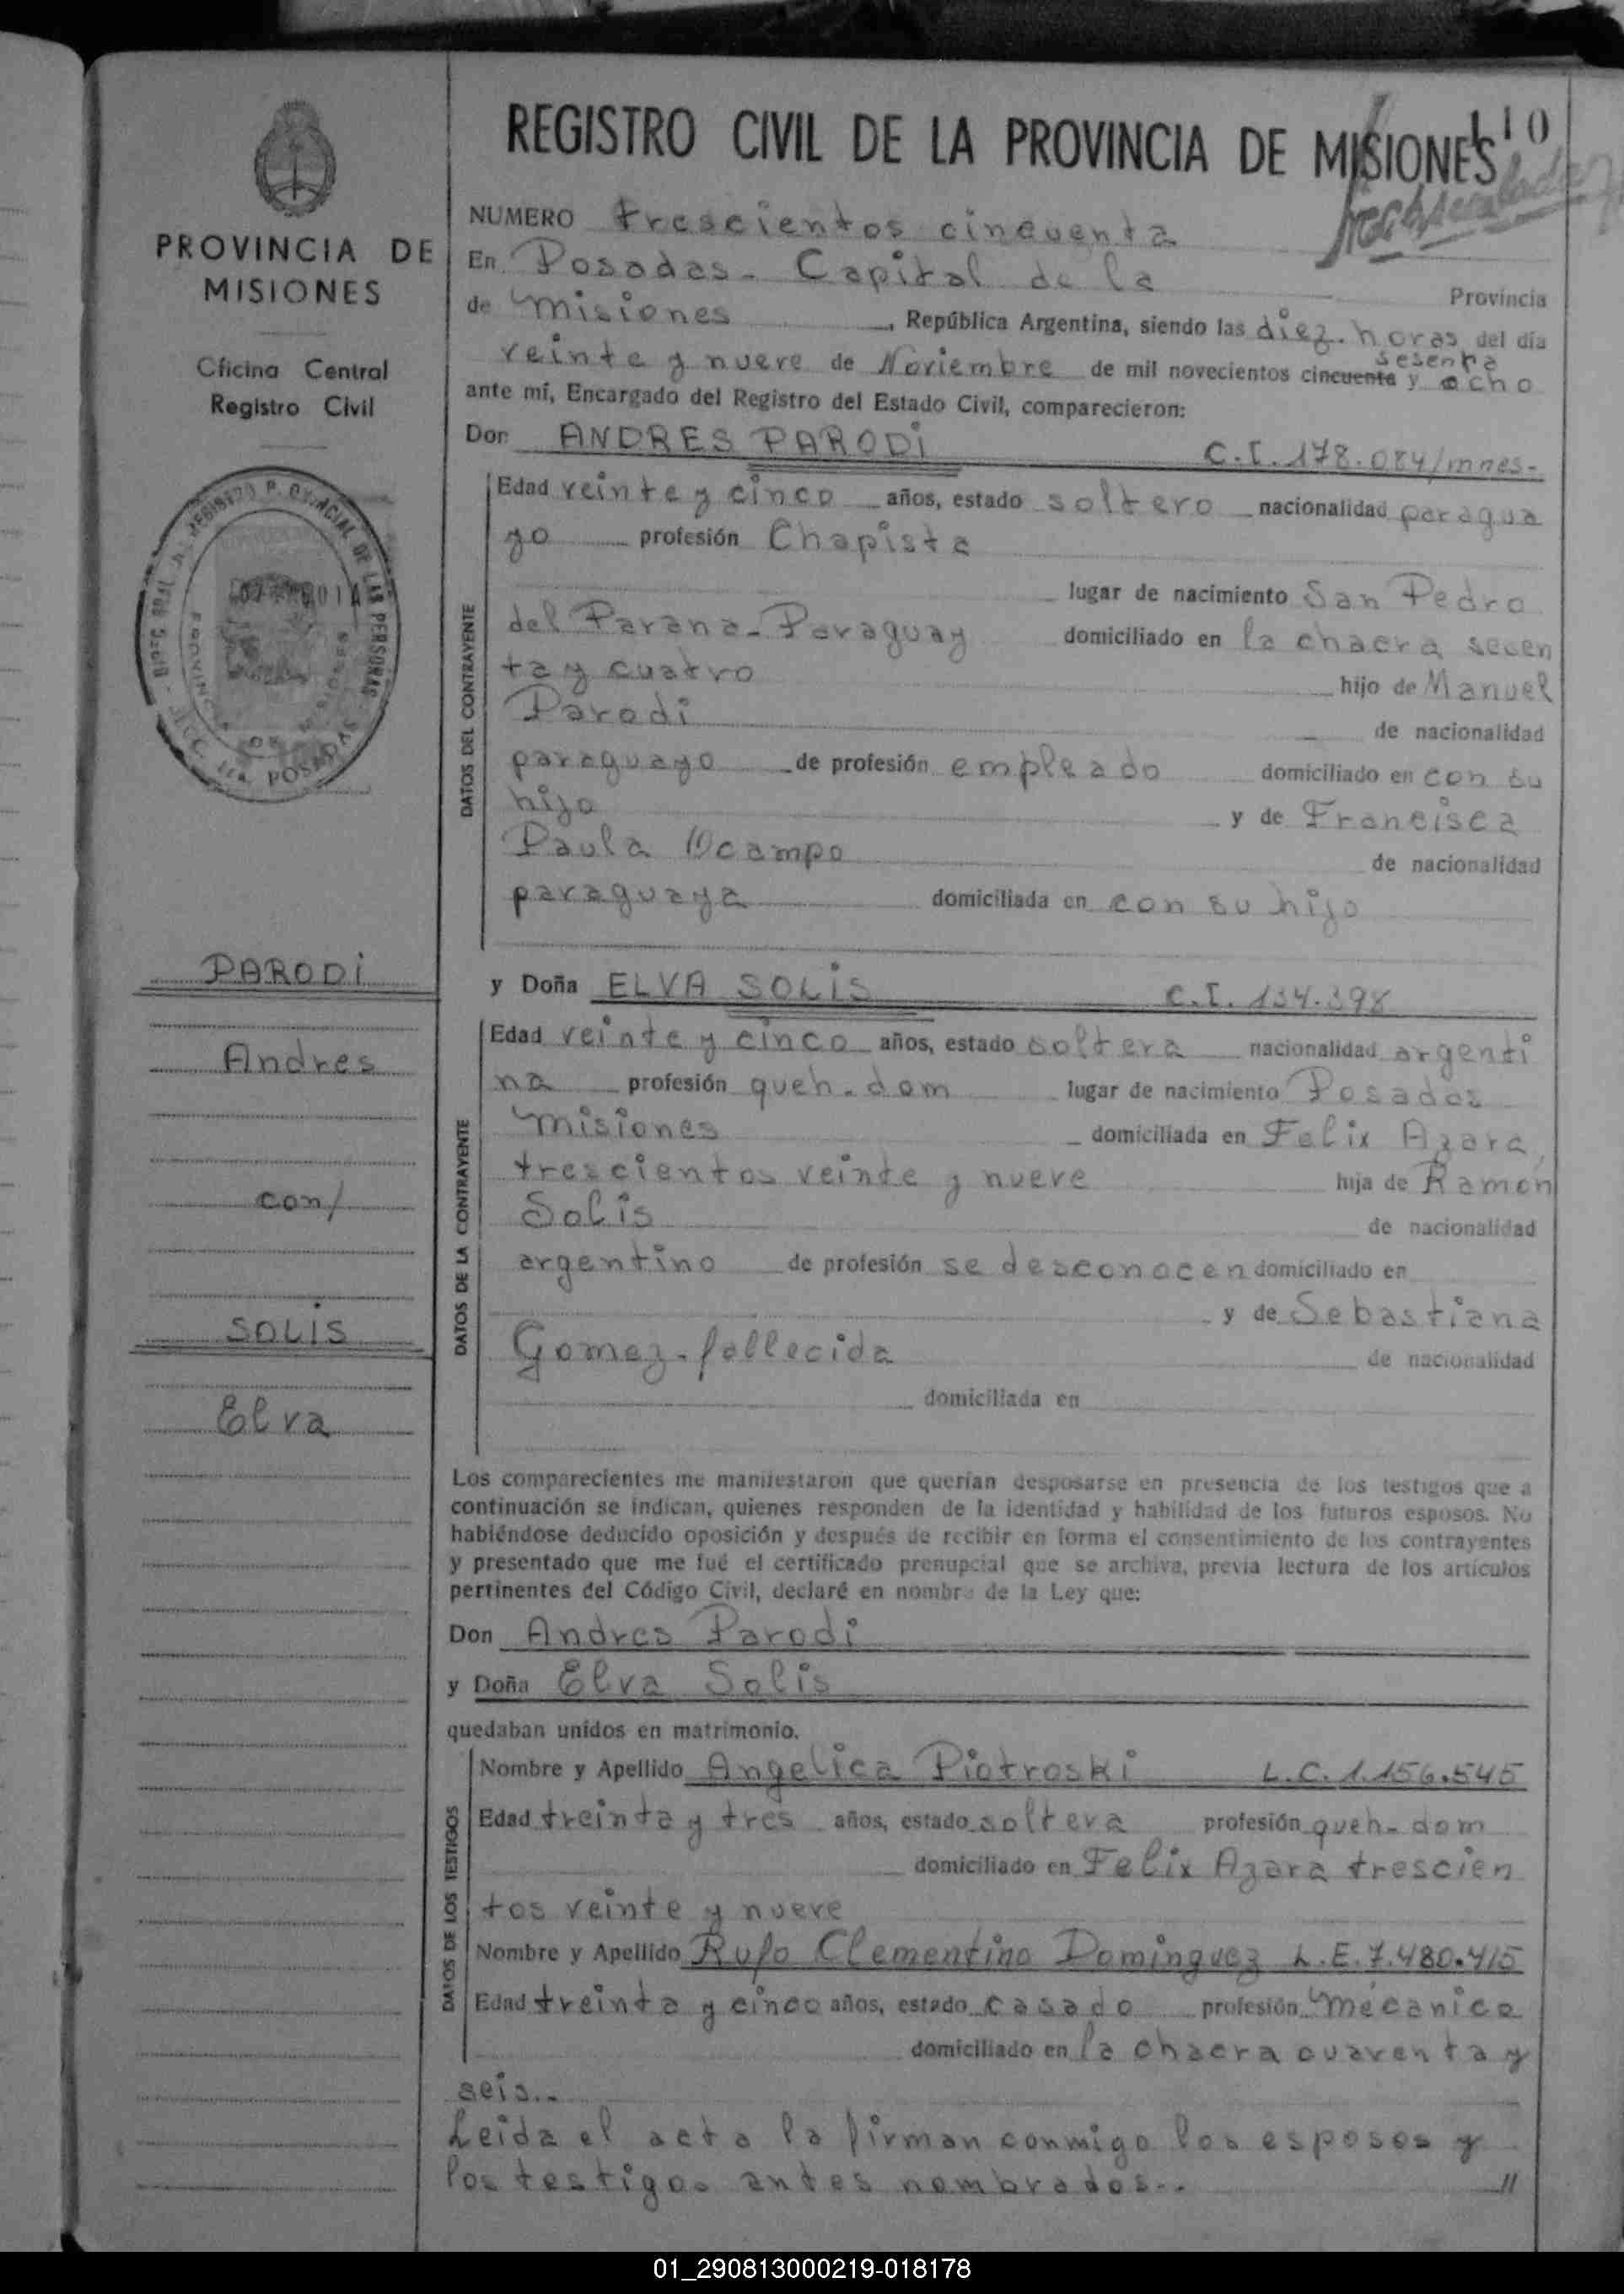 REGISTRO CIVIL DE LA PROVINCIA DE MISIONES
110
PROVINCIA DE
MISIONES
Oficina Central
Registro Civil
PARODI
Andres
con/
SOLIS
Elva
NUMERO trescientos cincuenta
En Posadas- Capital de la Provincia
de Misiones, República Argentina, siendo las diez horas del día
sesenta
veinte y nueve de Noviembre de mil novecientos cincuenta y ocho
ante mí, Encargado del Registro del Estado Civil, comparecieron:
Don ANDRES PARODI C.I. 178.084/mnes-
DATOS DEL CONTRAYENTE
Edad veinte y cinco años, estado soltero nacionalidad paragua
yo profesión Chapista
lugar de nacimiento San Pedro
del Parana-Paraguay domiciliado en la chacra secen
ta y cuatro hijo de Manuel
Parodi de nacionalidad
paraguayo de profesión empleado domiciliado en con su
hijo y de Francisca
Paula Ocampo de nacionalidad
paraguaya domiciliada en con su hijo
y Doña ELVA SOLIS C.I. 134.398
DATOS DE LA CONTRAYENTE
Edad veinte y cinco años, estado soltera nacionalidad argenti
na profesión queh-dom lugar de nacimiento Posadas
Misiones domiciliada en Felix Azara,
trescientos veinte y nueve hija de Ramon
Solis de nacionalidad
argentino de profesión se desconocen domiciliado en
y de Sebastiana
Gomez-fallecida de nacionalidad
domiciliada en
Los comparecientes me manifestaron que querían desposarse en presencia de los testigos que a
continuación se indican, quienes responden de la identidad y habilidad de los futuros esposos. No
habiéndose deducido oposición y después de recibir en forma el consentimiento de los contrayentes
y presentado que me fué el certificado prenupcial que se archiva, previa lectura de los artículos
pertinentes del Código Civil, declaré en nombre de la Ley que:
Don Andres Parodi
y Doña Elva Solis
quedaban unidos en matrimonio.
DATOS DE LOS TESTIGOS
Nombre y Apellido Angelica Piotroski L.C. 1.156.545
Edad treinta y tres años, estado soltera profesión queh-dom
domiciliado en Felix Azara trescien
tos veinte y nueve
Nombre y Apellido Rufo Clementino Dominguez L.E. 7.480.415
Edad treinta y cinco años, estado casado profesión mecanico
domiciliado en la chacra cuarenta y
seis..
Leida el acta la firman conmigo los esposos y
los testigos antes nombrados.. //
01_290813000219-018178